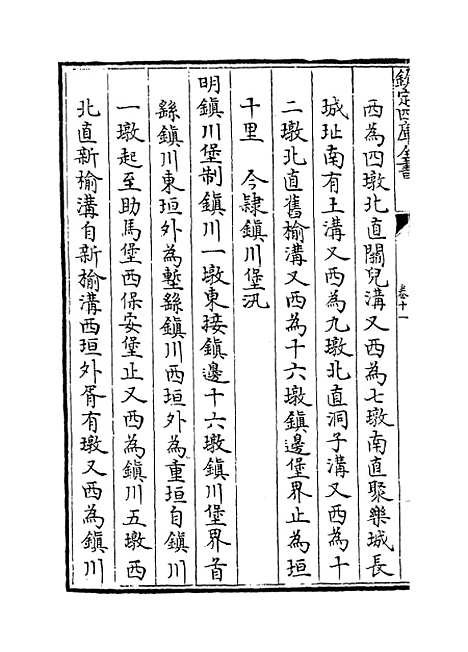 欽定四庫全書
卷十一
西為四墩北直關兒溝又西為七墩南直聚樂城長
城址南有土溝又西為九墩北直洞子溝又西為十
二墩北直舊榆溝又西為十六墩鎮邊堡界止為垣
十里　今隸鎮川堡汛
明鎮川堡制鎮川一墩東接鎮邊十六墩鎮川堡界首
繇鎮川東垣外為塹繇鎮川西垣外為重垣自鎮川
一墩起至助馬堡西保安堡止又西為鎮川五墩西
北直新榆溝自新榆溝西垣外胥有墩又西為鎮川